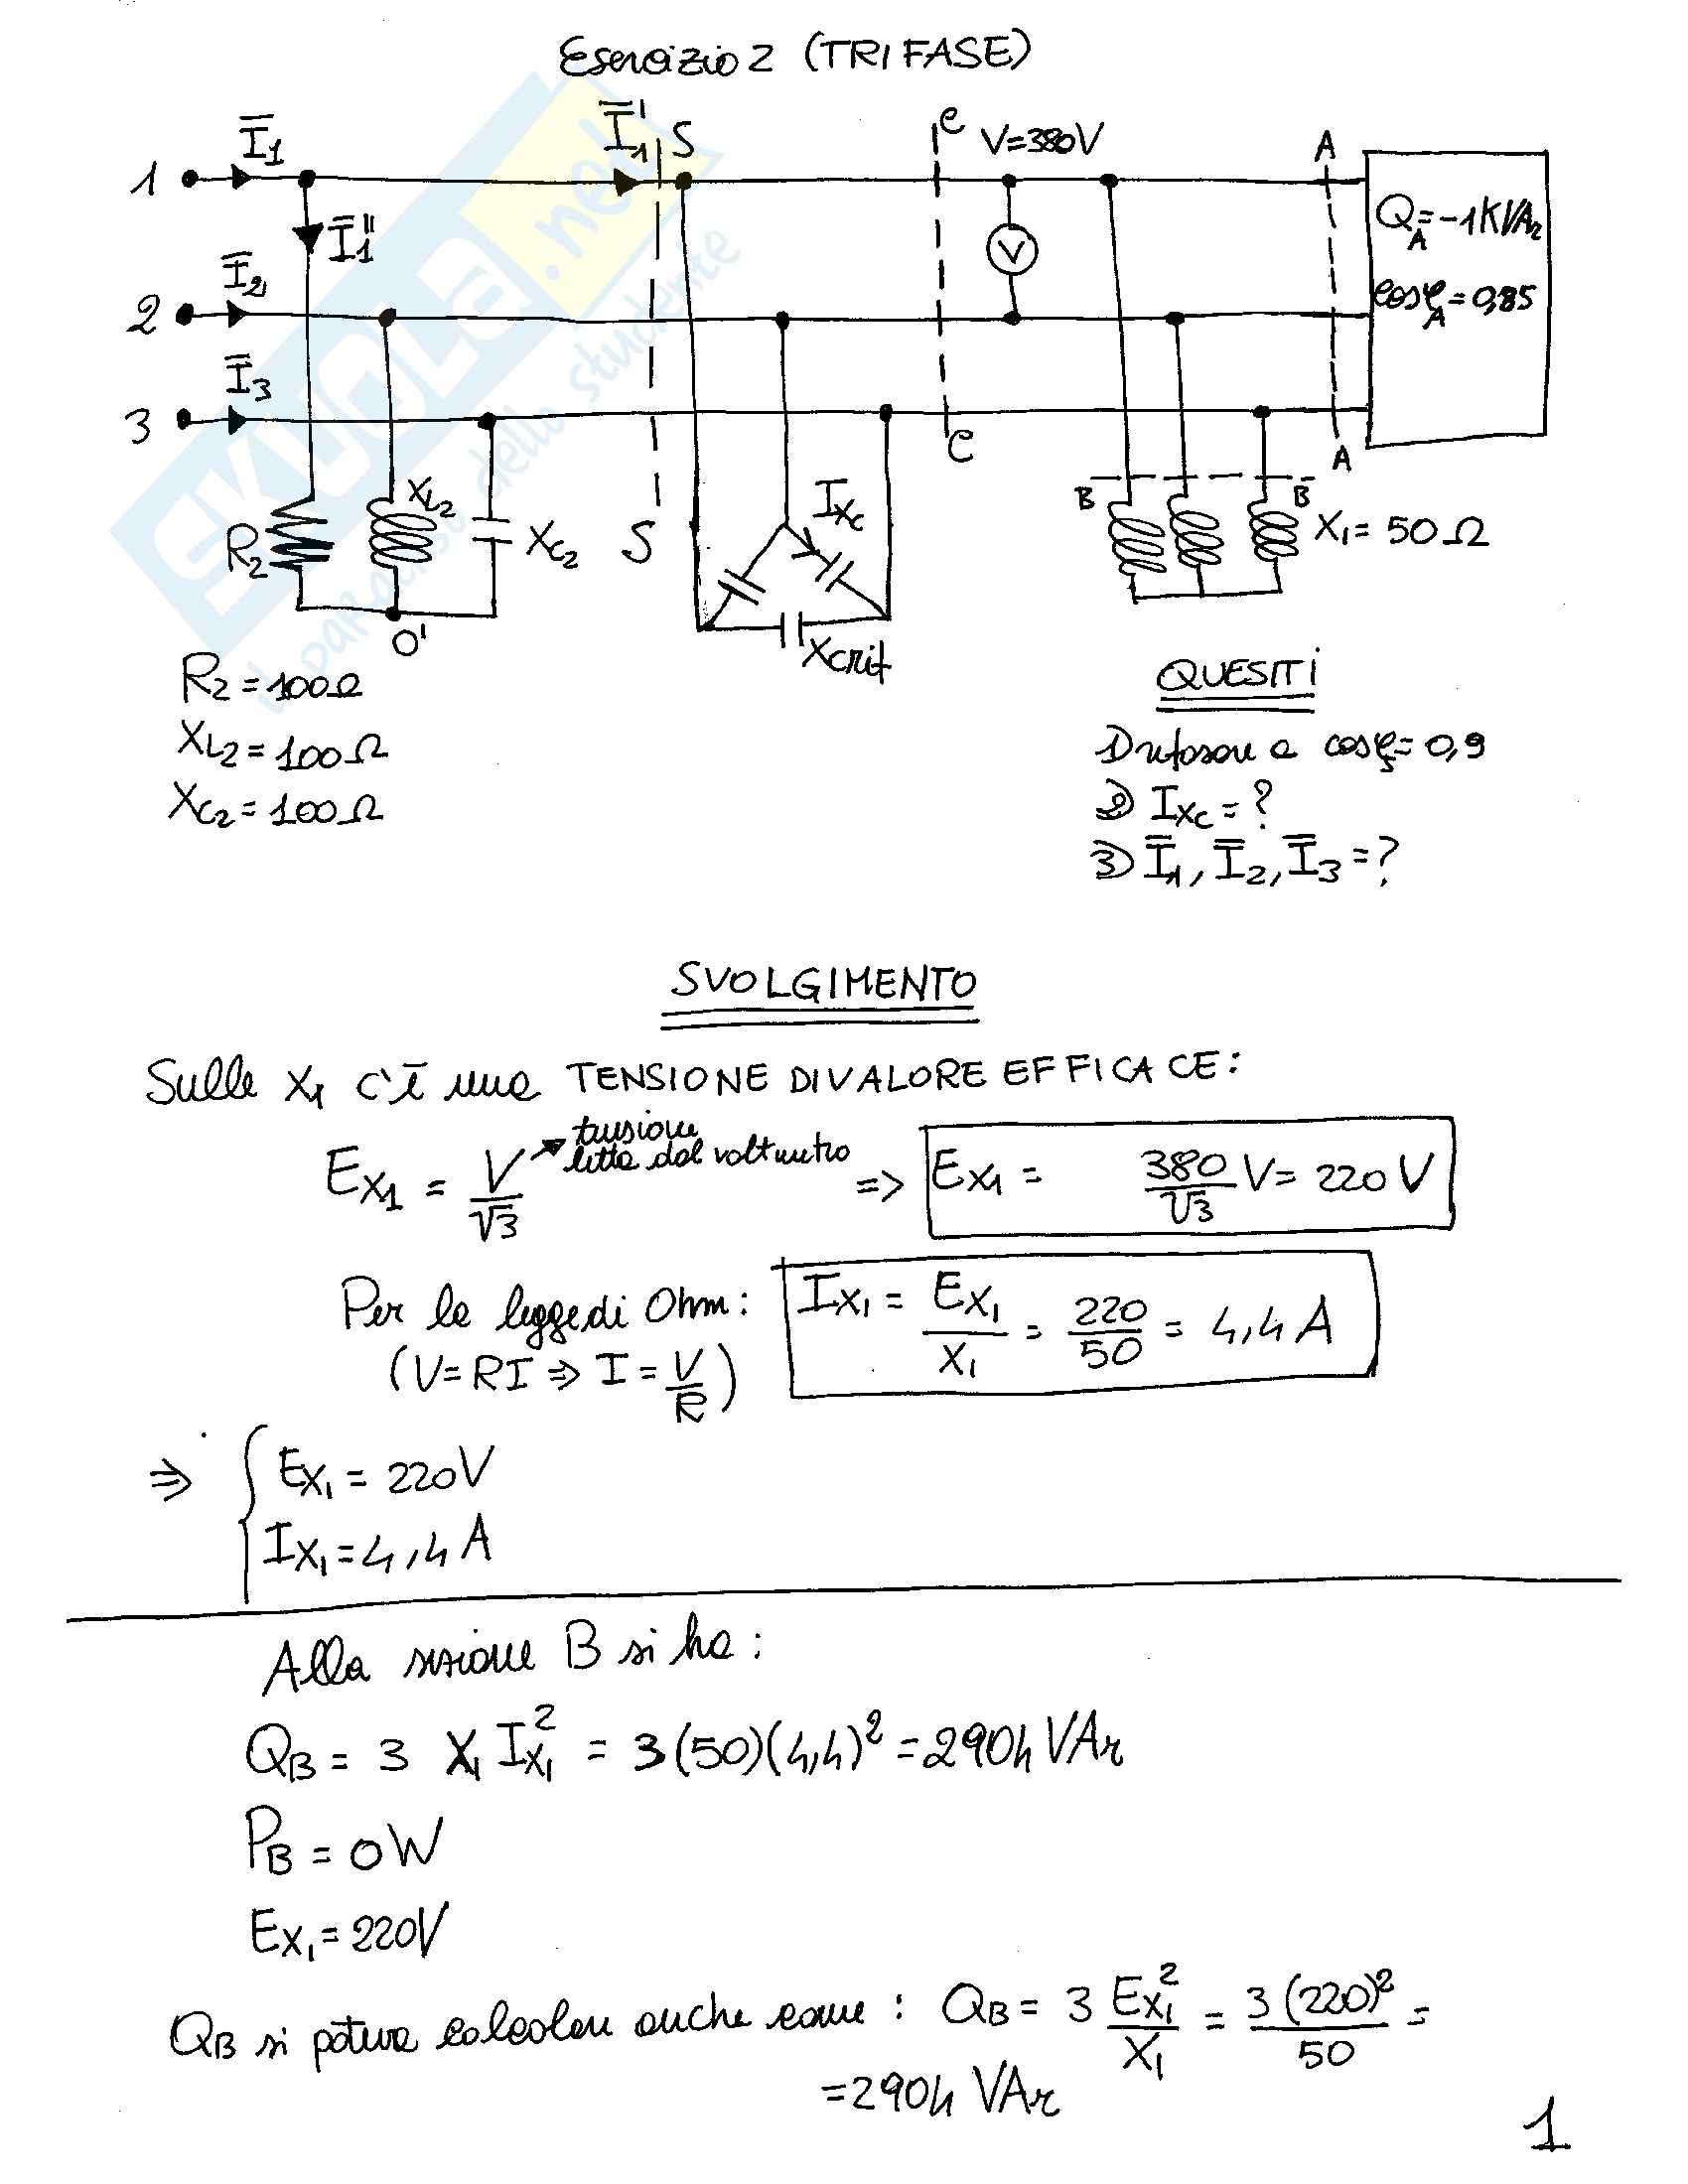 Esercizio 2 (TRIFASE)
1 I̅1 I̅1' S C V=380V A
I̅1'' V Q_A = -1KVAr
2 I̅2 cosφ_A = 0,85
3 I̅3 C A
R2 XL2 XC2 S IXC B B X1 = 50Ω
O' Xcrif
R2 = 100Ω
XL2 = 100Ω
XC2 = 100Ω
QUESITI
1) rifasare a cosφ = 0,9
2) IXC = ?
3) I̅1, I̅2, I̅3 = ?
SKUOLA.net
il paradiso dello studente
SVOLGIMENTO
Sulle X1 c'è una TENSIONE DI VALORE EFFICACE:
EX1 = V/√3 → tensione letta dal voltmetro => EX1 = 380/√3 V = 220 V
Per la legge di Ohm: IX1 = EX1/X1 = 220/50 = 4,4 A
(V=RI ⇒ I = V/R)
⇒ { EX1 = 220V
IX1 = 4,4 A
Alla sezione B si ha:
QB = 3 X1 IX1² = 3(50)(4,4)² = 2904 VAr
PB = 0W
EX1 = 220V
QB si poteva calcolare anche come: QB = 3 EX1²/X1 = 3(220)²/50 =
= 2904 VAr
1